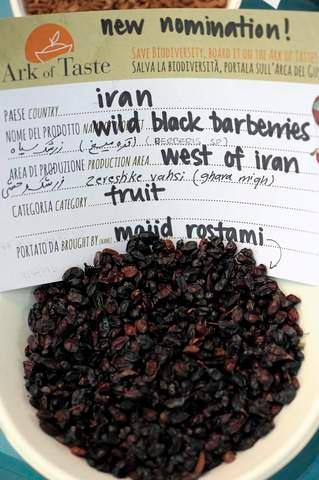 new nomination!
Ark of Taste
SAVE BIODIVERSITY, BOARD IT ON THE ARK OF TASTE
SALVA LA BIODIVERSITÀ, PORTALA SULL'ARCA DEL GU
PAESE COUNTRY iran
NOME DEL PRODOTTO NA wild black barberries
زرشک سیاه (قره میخ) (BERBERIS SP)
AREA DI PRODUZIONE PRODUCTION AREA west of iran
زرشک وحشی zereshke vahsi (ghara migh)
CATEGORIA CATEGORY fruit
PORTATO DA BROUGHT BY (NAME) majid rostami